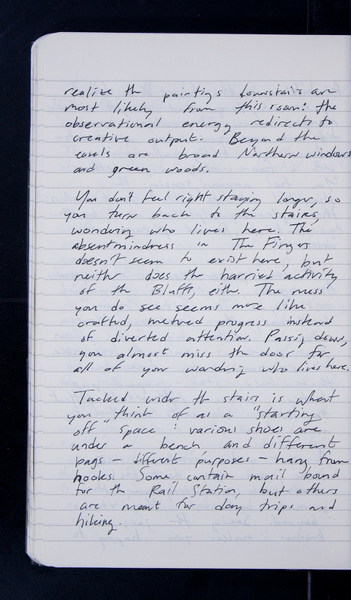 realize the paintings downstairs are
most likely from this room: the
observational energy redirects to
creative output. Beyond the
easels are broad Northern windows
and green woods.
You don't feel right staying longer, so
you turn back to the stairs,
wondering who lives here. The
absentmindness in The Fingers
doesn't seem to exist here, but
neither does the harried activity
of the Bluffs, either. The mess
you do see seems more like
crafted, metered progress instead
of diverted attention. Passing down,
you almost miss the door for
all of your wondering who lives here.
Tucked under the stairs is what
you think of as a "starting
off" space: various shoes are
under a bench and different
bags – different purposes – hang from
hooks. Some contain mail bound
for the Rail Station, but others
are meant for day trips and
hiking.